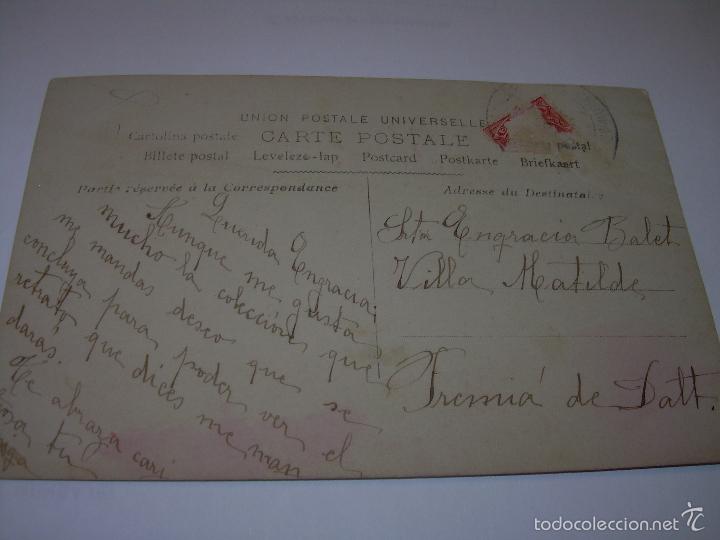 UNION POSTALE UNIVERSELLE
Cartolina postale CARTE POSTALE postal
Billete postal Levelezo-lap Postcard Postkarte Briefkaart
Partie réservée à la Correspondance
Adresse du Destinataire
Querida Engracia;
Aunque me gusta
mucho la colección que
me mandas deseo que se
concluya para poder ver el
retrato que dices me man
daras.
Te abraza cari
ñosa tu
Srta Engracia Balet
Villa Matilde
Premiá de Dalt.
todocoleccion.net